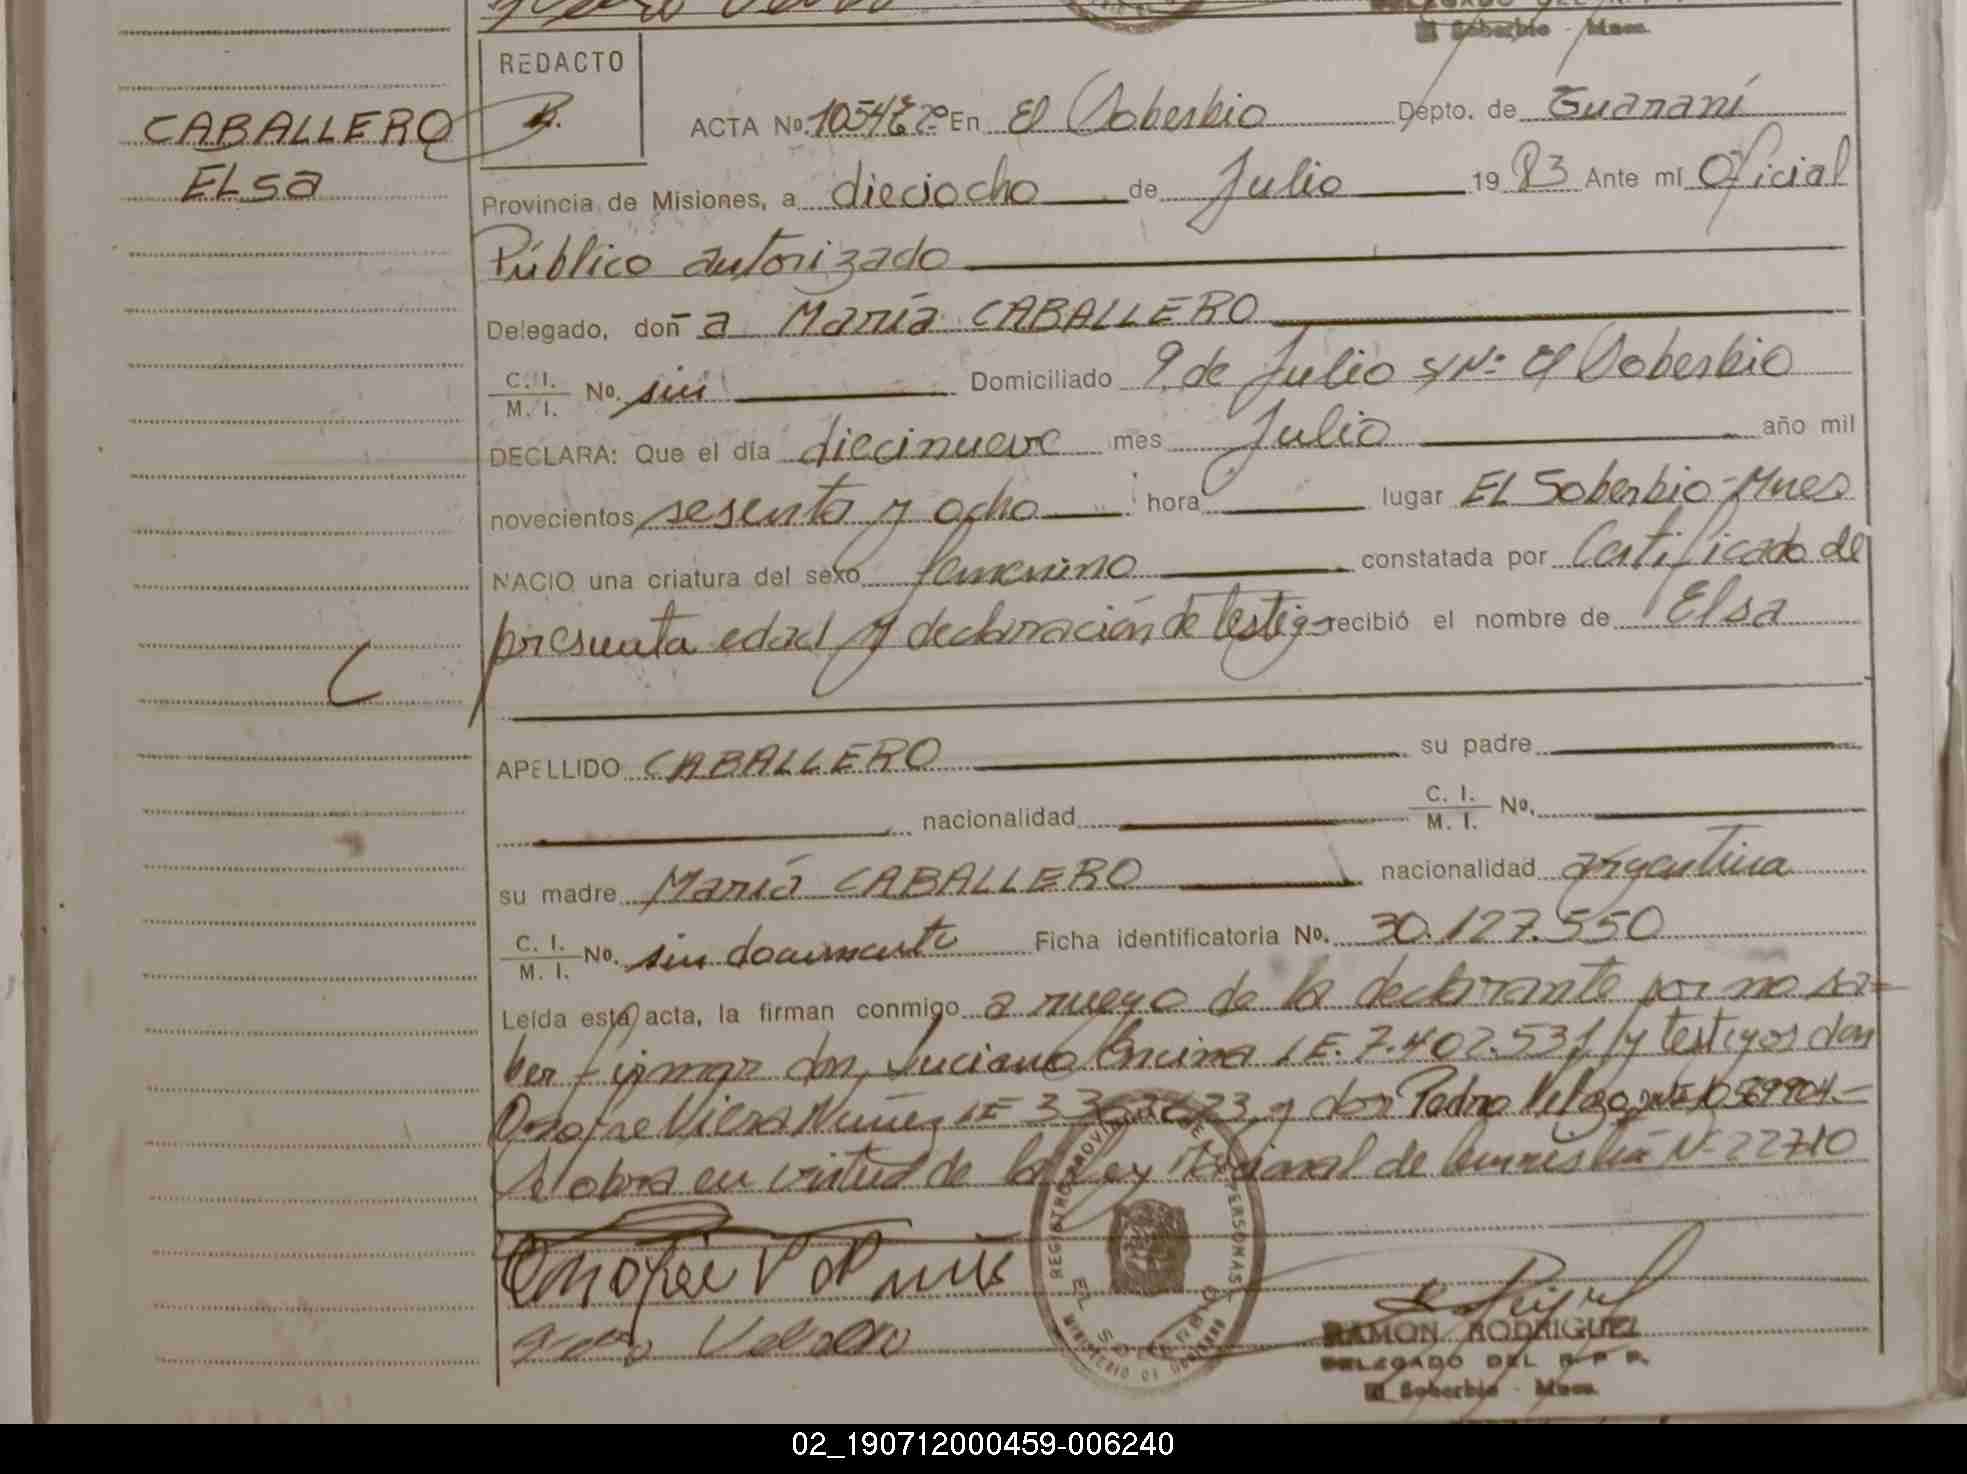 Soberbio - Mnes.
REDACTO
CABALLERO
ELsa
ACTA No. 1054 En El Soberbio Depto. de Guaraní
Provincia de Misiones, a dieciocho de Julio 19 83 Ante mí Oficial
Público autorizado
Delegado, doñ a María CABALLERO
C. I. / M. I. No. sin Domiciliado 9 de Julio s/Nº El Soberbio
DECLARA: Que el día diecinueve mes Julio año mil
novecientos sesenta y ocho hora lugar EL Soberbio-Mnes
NACIO una criatura del sexo femenino constatada por Certificado de
presunta edad y declaración de testig- recibió el nombre de Elsa
APELLIDO CABALLERO su padre
nacionalidad C. I. / M. I. No.
su madre María CABALLERO nacionalidad argentina
C. I. / M. I. No. sin documento Ficha identificatoria No. 30.127.550
Leída esta acta, la firman conmigo a ruego de la declarante por no sa=
ber firmar don Luciano Encina LE. 7.402.531 y testigos don
Onofre Viera Nuñez LE y don Pedro
Se labra en virtud de la Ley Nacional de Nº 22710
REGISTRO PROVINCIAL DE PERSONAS
EL SOBERBIO
MINISTERIO DE GOBIERNO
RAMON RODRIGUEZ
DELEGADO DEL R. P. P.
El Soberbio - Mnes.
02_190712000459-006240